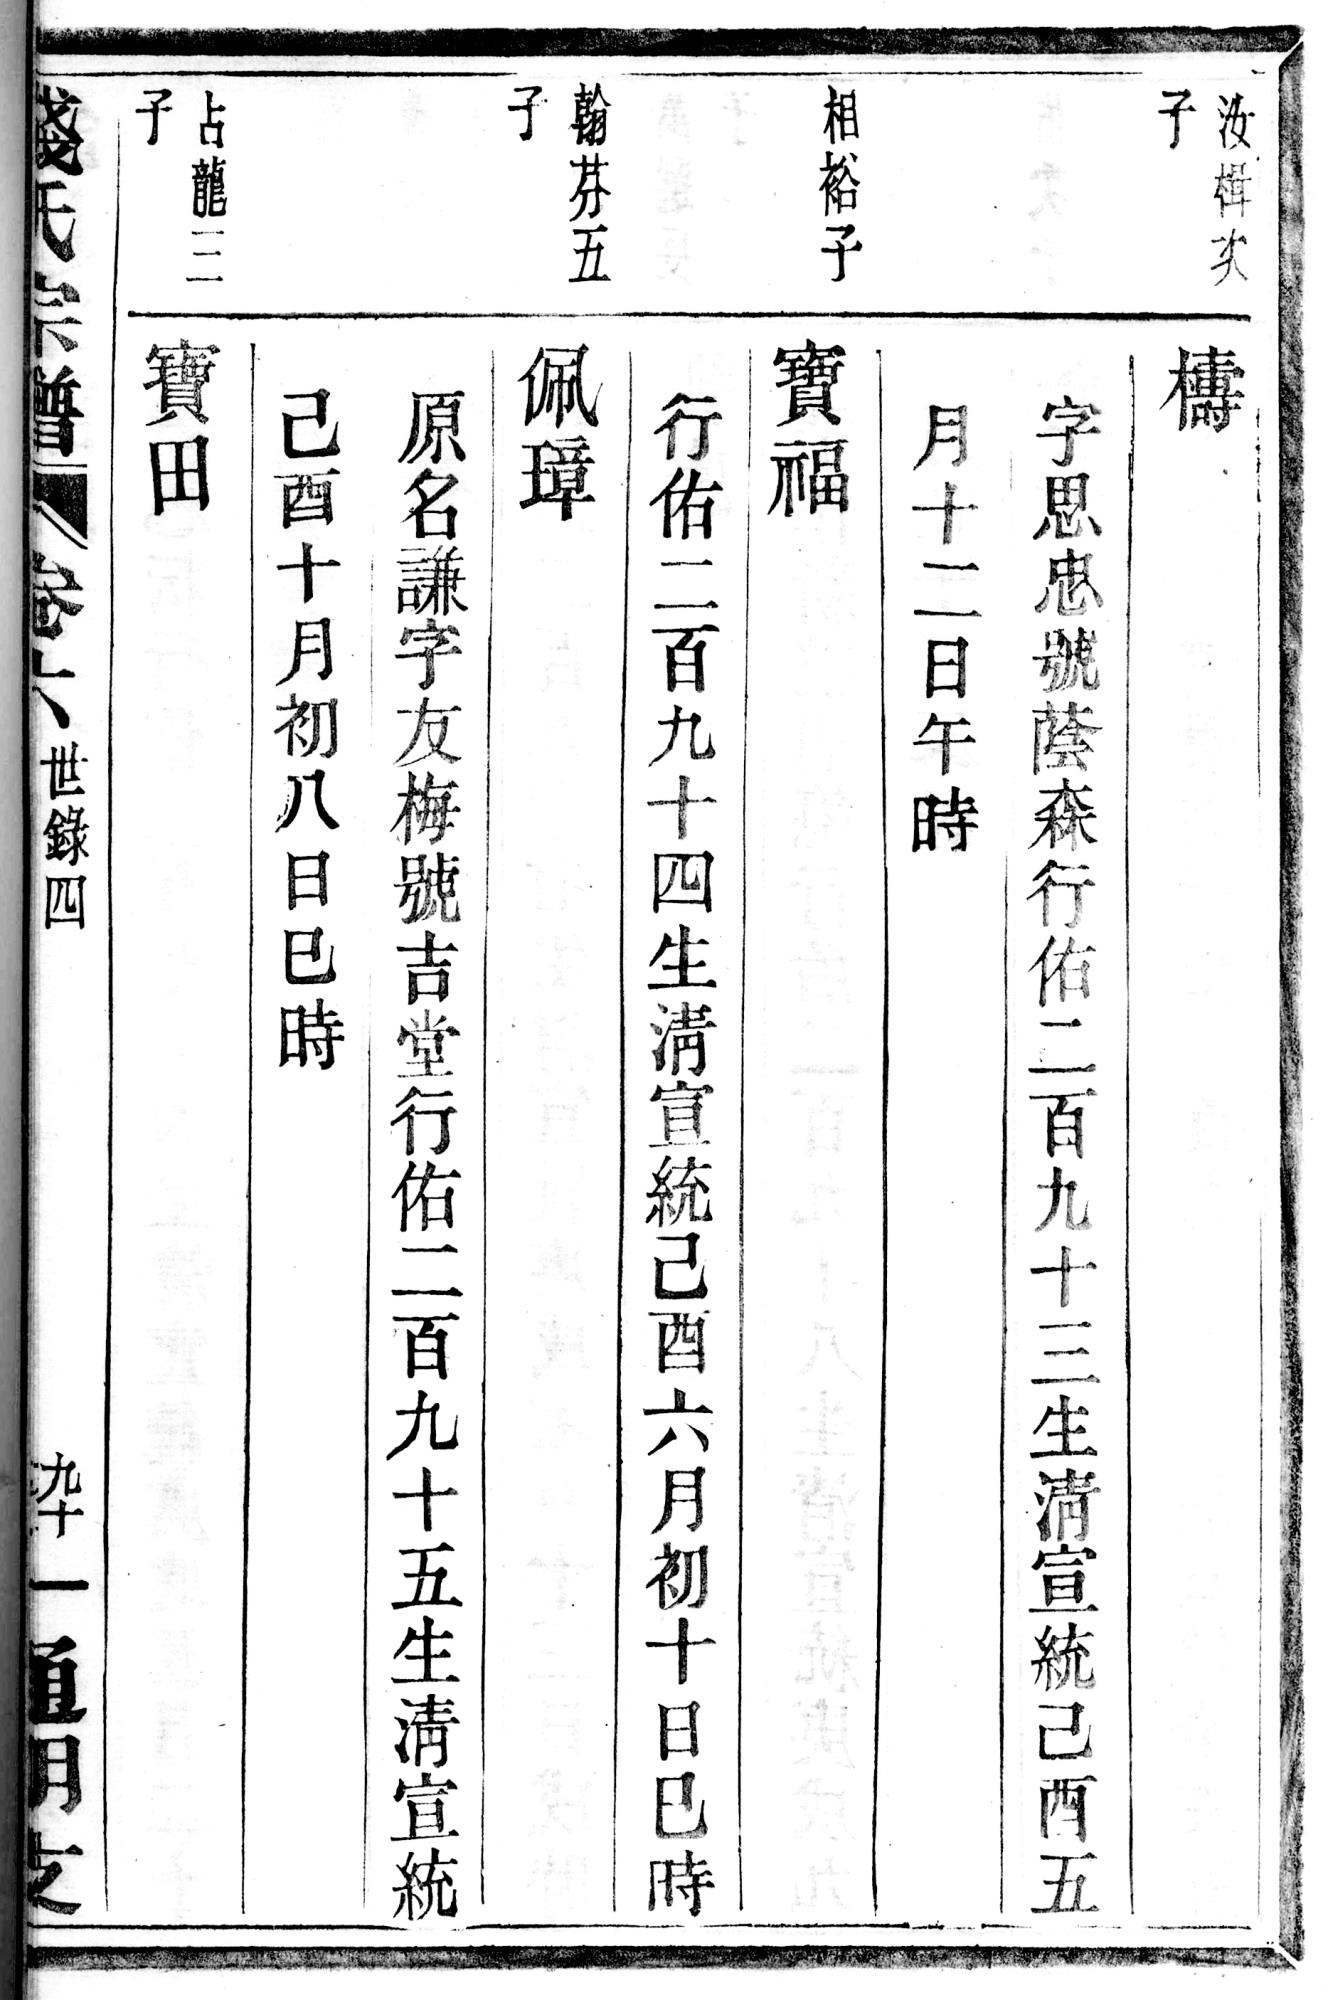 汝楫次
子
檮
字思忠號蔭森行佑二百九十三生淸宣統己酉五
月十二日午時
相裕子
寶福
行佑二百九十四生淸宣統己酉六月初十日巳時
翰芬五
子
佩璋
原名謙字友梅號吉堂行佑二百九十五生淸宣統
己酉十月初八日巳時
占龍三
子
寶田
錢氏宗譜
卷六
世錄四
九十
一
通明支